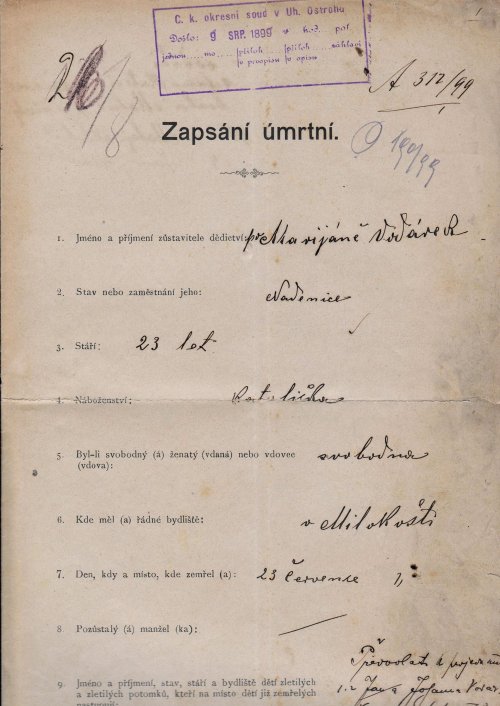 C. k. okresní soud v Uh. Ostrohu
Došlo: 9 SRP. 1899 v hod. pol.
jednou mo příloh příloh záhlaví
v prvopisu v opisu
A 312/99
28/8
Zapsání úmrtní.
O 199/99
1. Jméno a příjmení zůstavitele dědictví: po Marijáně Vodárek
2. Stav nebo zaměstnání jeho: Nadenice
3. Stáří: 23 let
4. Náboženství: katolička
5. Byl-li svobodný (á) ženatý (vdaná) nebo vdovec svobodna
(vdova):
6. Kde měl (a) řádné bydliště: v Milokošti
7. Den, kdy a místo, kde zemřel (a): 23 července "
8 Pozůstalý (á) manžel (ka): —
9. Jméno a příjmení, stav, stáří a bydliště dětí zletilých
a zletilých potomků, kteří na místo dětí již zemřelých
Předvolati k pojednání
1. Jana Johanna